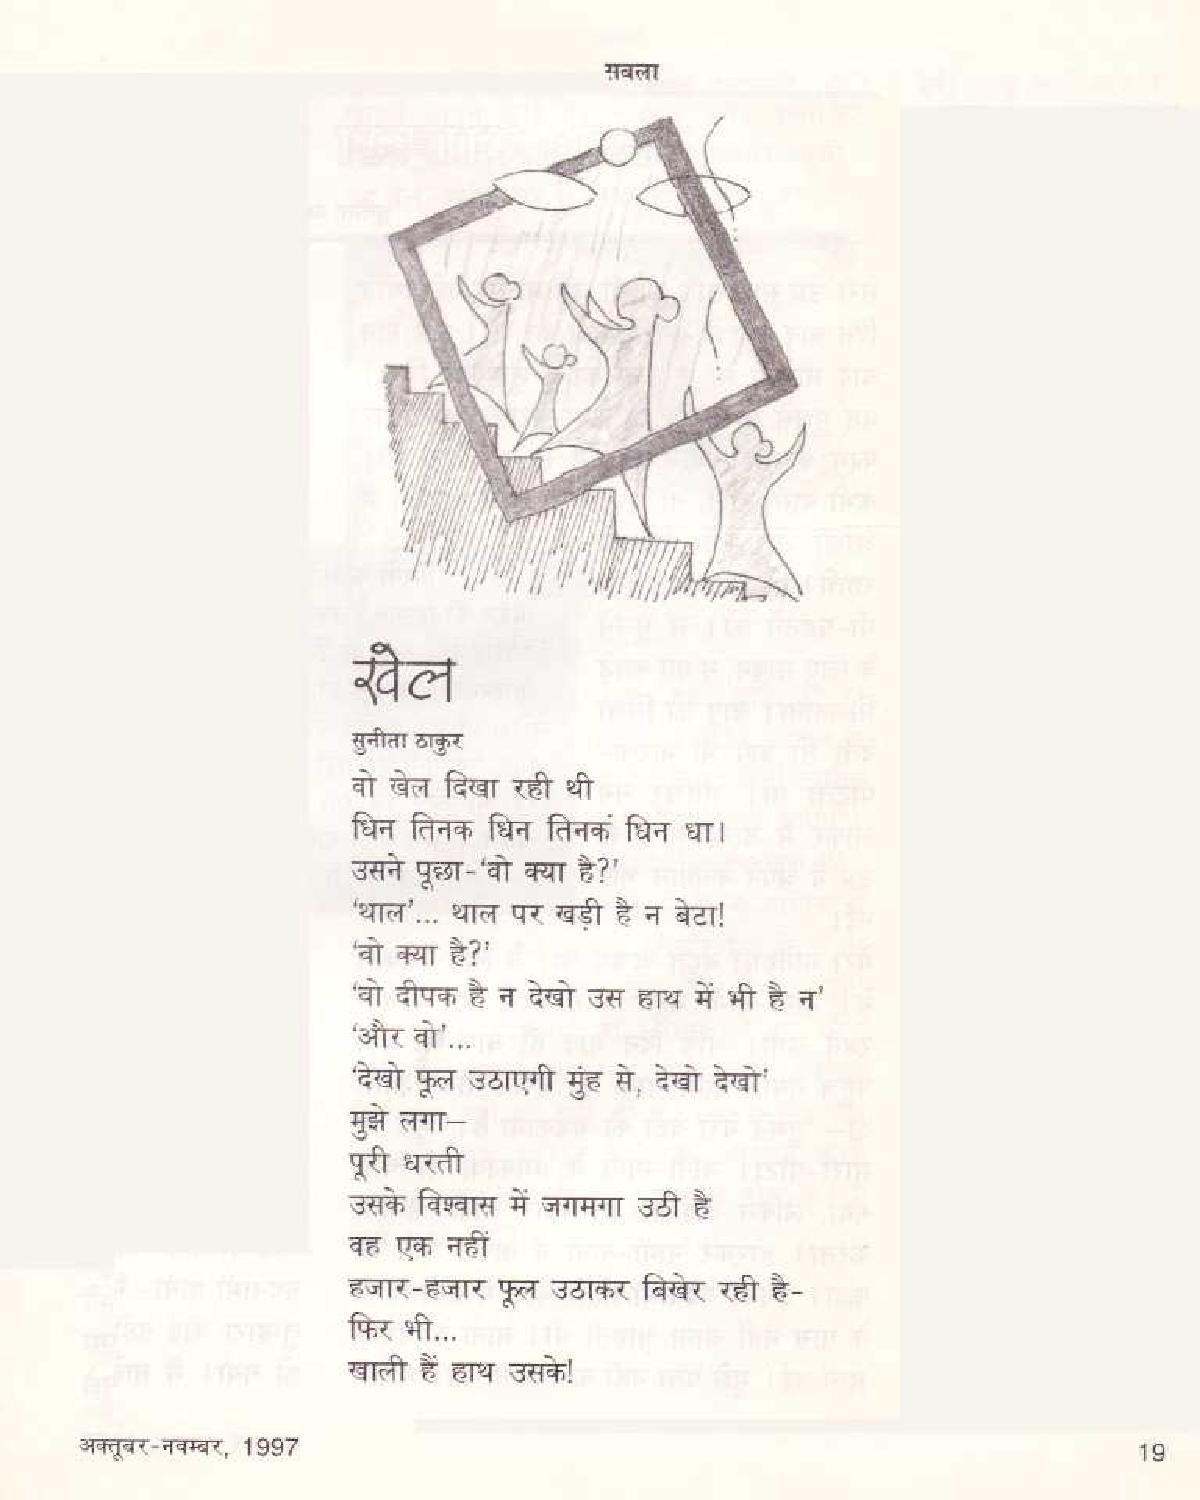 सबला
खेल
सुनीता ठाकुर
वो खेल दिखा रही थी
धिन तिनक धिन तिनकं धिन धा।
उसने पूछा-‘वो क्या है?’
‘थाल’... थाल पर खड़ी है न बेटा!
‘वो क्या है?’
‘वो दीपक है न देखो उस हाथ में भी है न’
‘और वो’...
‘देखो फूल उठाएगी मुंह से, देखो देखो’
मुझे लगा—
पूरी धरती
उसके विश्वास में जगमगा उठी है
वह एक नहीं
हजार-हजार फूल उठाकर बिखेर रही है-
फिर भी...
खाली हैं हाथ उसके!
अक्तूबर-नवम्बर, 1997
19